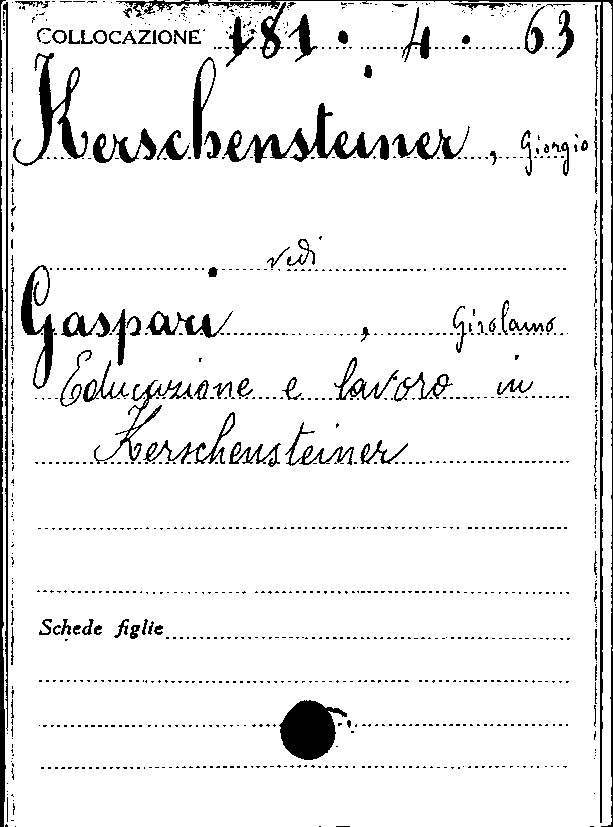 COLLOCAZIONE 181. 4. 63
Kerschensteiner, Giorgio
vedi
Gaspari, Girolamo
Educazione e lavoro in
Kerschensteiner
Schede figlie